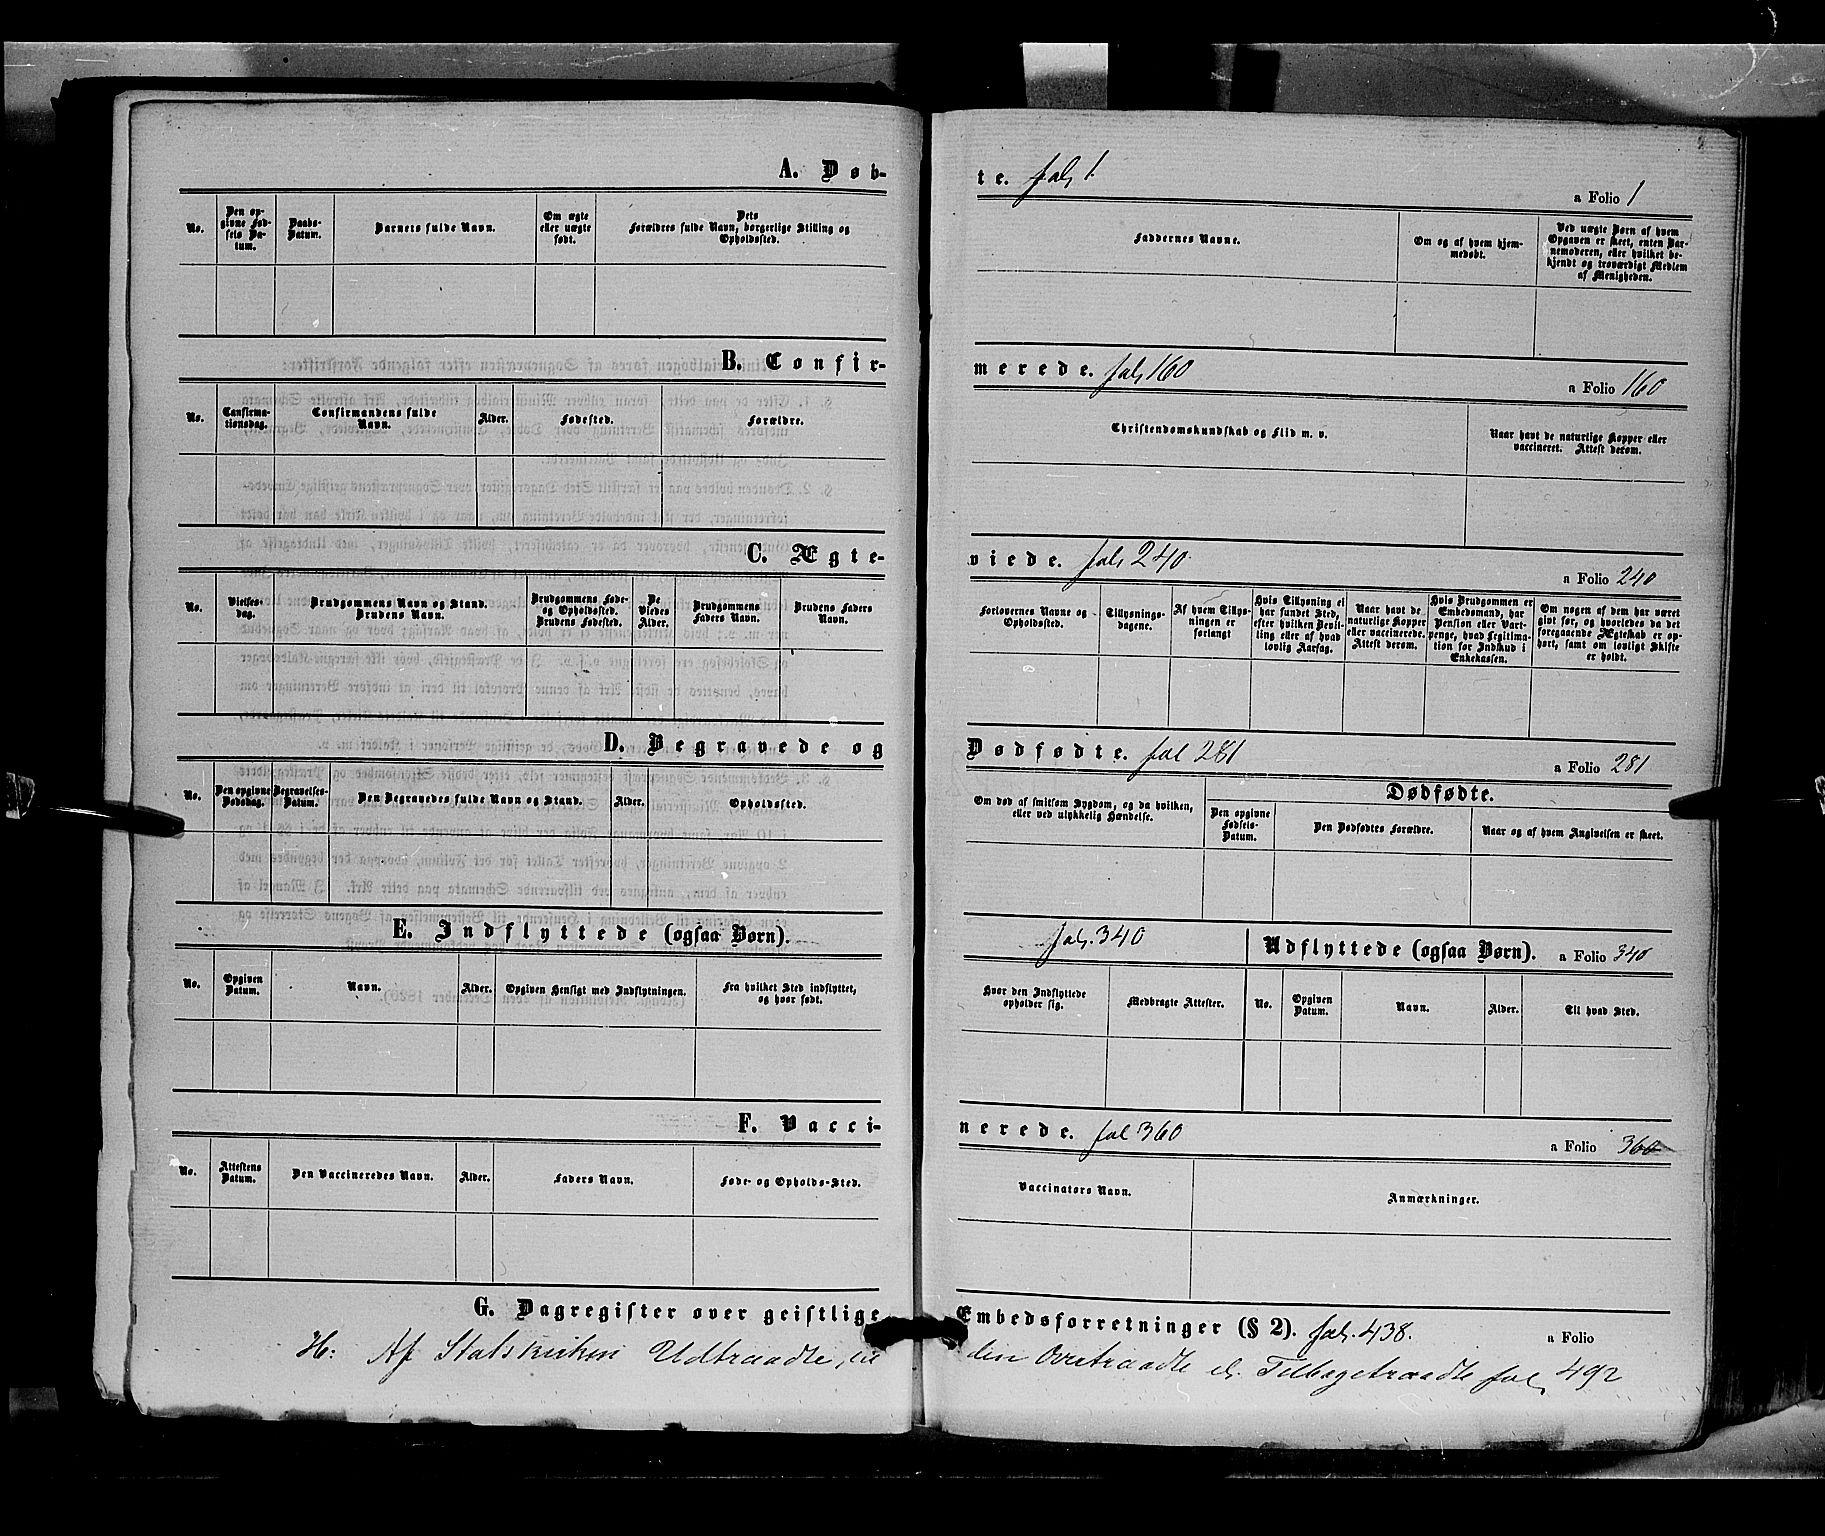 A. Døb-
te. fol, 1. a Folio 1
No.
Den op-
givne Fød-
sels Da-
tum.
Daabs-
Datum.
Barnets fulde Navn.
Om ægte
eller uægte
født.
Dets
Forældres fulde Navn, borgerlige Stilling og
Opholdssted.
Faddernes Navne.
Om og af hvem hjem-
medøbt.
Ved uægte Børn af hvem
Opgaven er skeet, enten Bar-
nemoderen, eller hvilket be-
kjendt og troværdigt Medlem
af Menigheden.
B. Confir-
merede. fol, 160 a Folio 160
No.
Confirma-
tionsdag.
Confirmandens fulde
Navn.
Alder.
Fødested.
Forældre.
Christendomskundskab og Flid m. v.
Naar havt de naturlige Kopper eller
vaccineret. Attest derom.
C. Ægte-
viede. fol, 240. a Folio 240
No.
Vielses-
dag.
Brudgommens Navn og Stand.
Brudens Navn.
Brudgommens Føde-
og Opholdssted.
Brudens Fødested.
De
Viedes
Alder.
Brudgommens
Faders Navn.
Brudens Faders
Navn.
Forlovernes Navne og
Opholdssted.
Tillysnings-
dagene.
Af hvem Tillys-
ningen er
forlangt
Hvis Tillysning ei
har fundet Sted,
efter hvilken Bevil-
ling eller af hvad
lovlig Aarsag.
Naar havt de
naturlige Kopper
eller vaccinerede.
Attest derom.
Hvis Brudgommen er
Embedsmand, har
Pension eller Vart-
penge, hvad Legitima-
tion for Indskud i
Enkekassen.
Om nogen af dem har været
gift før, og hvorledes da det
foregaaende Ægteskab er op-
hørt, samt om lovligt Skifte
er holdt.
D. Begravede og
Dødfødte. fol 281 a Folio 281
No.
Den opgivne
Dødsdag.
Begravelses-
Datum.
Den Begravedes fulde Navn og Stand.
Alder.
Opholdssted.
Om død af smitsom Sygdom, og da hvilken,
eller ved ulykkelig Hændelse.
Dødfødte.
Den opgivne
Fødsels-
Datum.
Den Dødfødtes Forældre.
Naar og af hvem Angivelsen er skeet.
E. Indflyttede (ogsaa Børn).
fol. 340 Udflyttede (ogsaa Børn). a Folio 340
No.
Opgiven
Datum.
Navn.
Alder.
Opgiven Hensigt med Indflytningen.
Fra hvilket Sted indflyttet,
og hvor født.
Hvor den Indflyttede
opholder sig.
Medbragte Attester.
No.
Opgiven
Datum.
Navn.
Alder.
Til hvad Sted.
F. Vacci-
nerede. fol 360 a Folio 360
No.
Attestens
Datum.
Den Vaccineredes Navn.
Alder.
Faders Navn.
Føde- og Opholds-Sted.
Vaccinators Navn.
Anmærkninger.
G. Dagregister over geistlige
Embedsforretninger (§ 2). fol. 438. a Folio
H: Af Statskirken Udtraadte,
Overtraadte el. Tilbagetraadte fol, 492